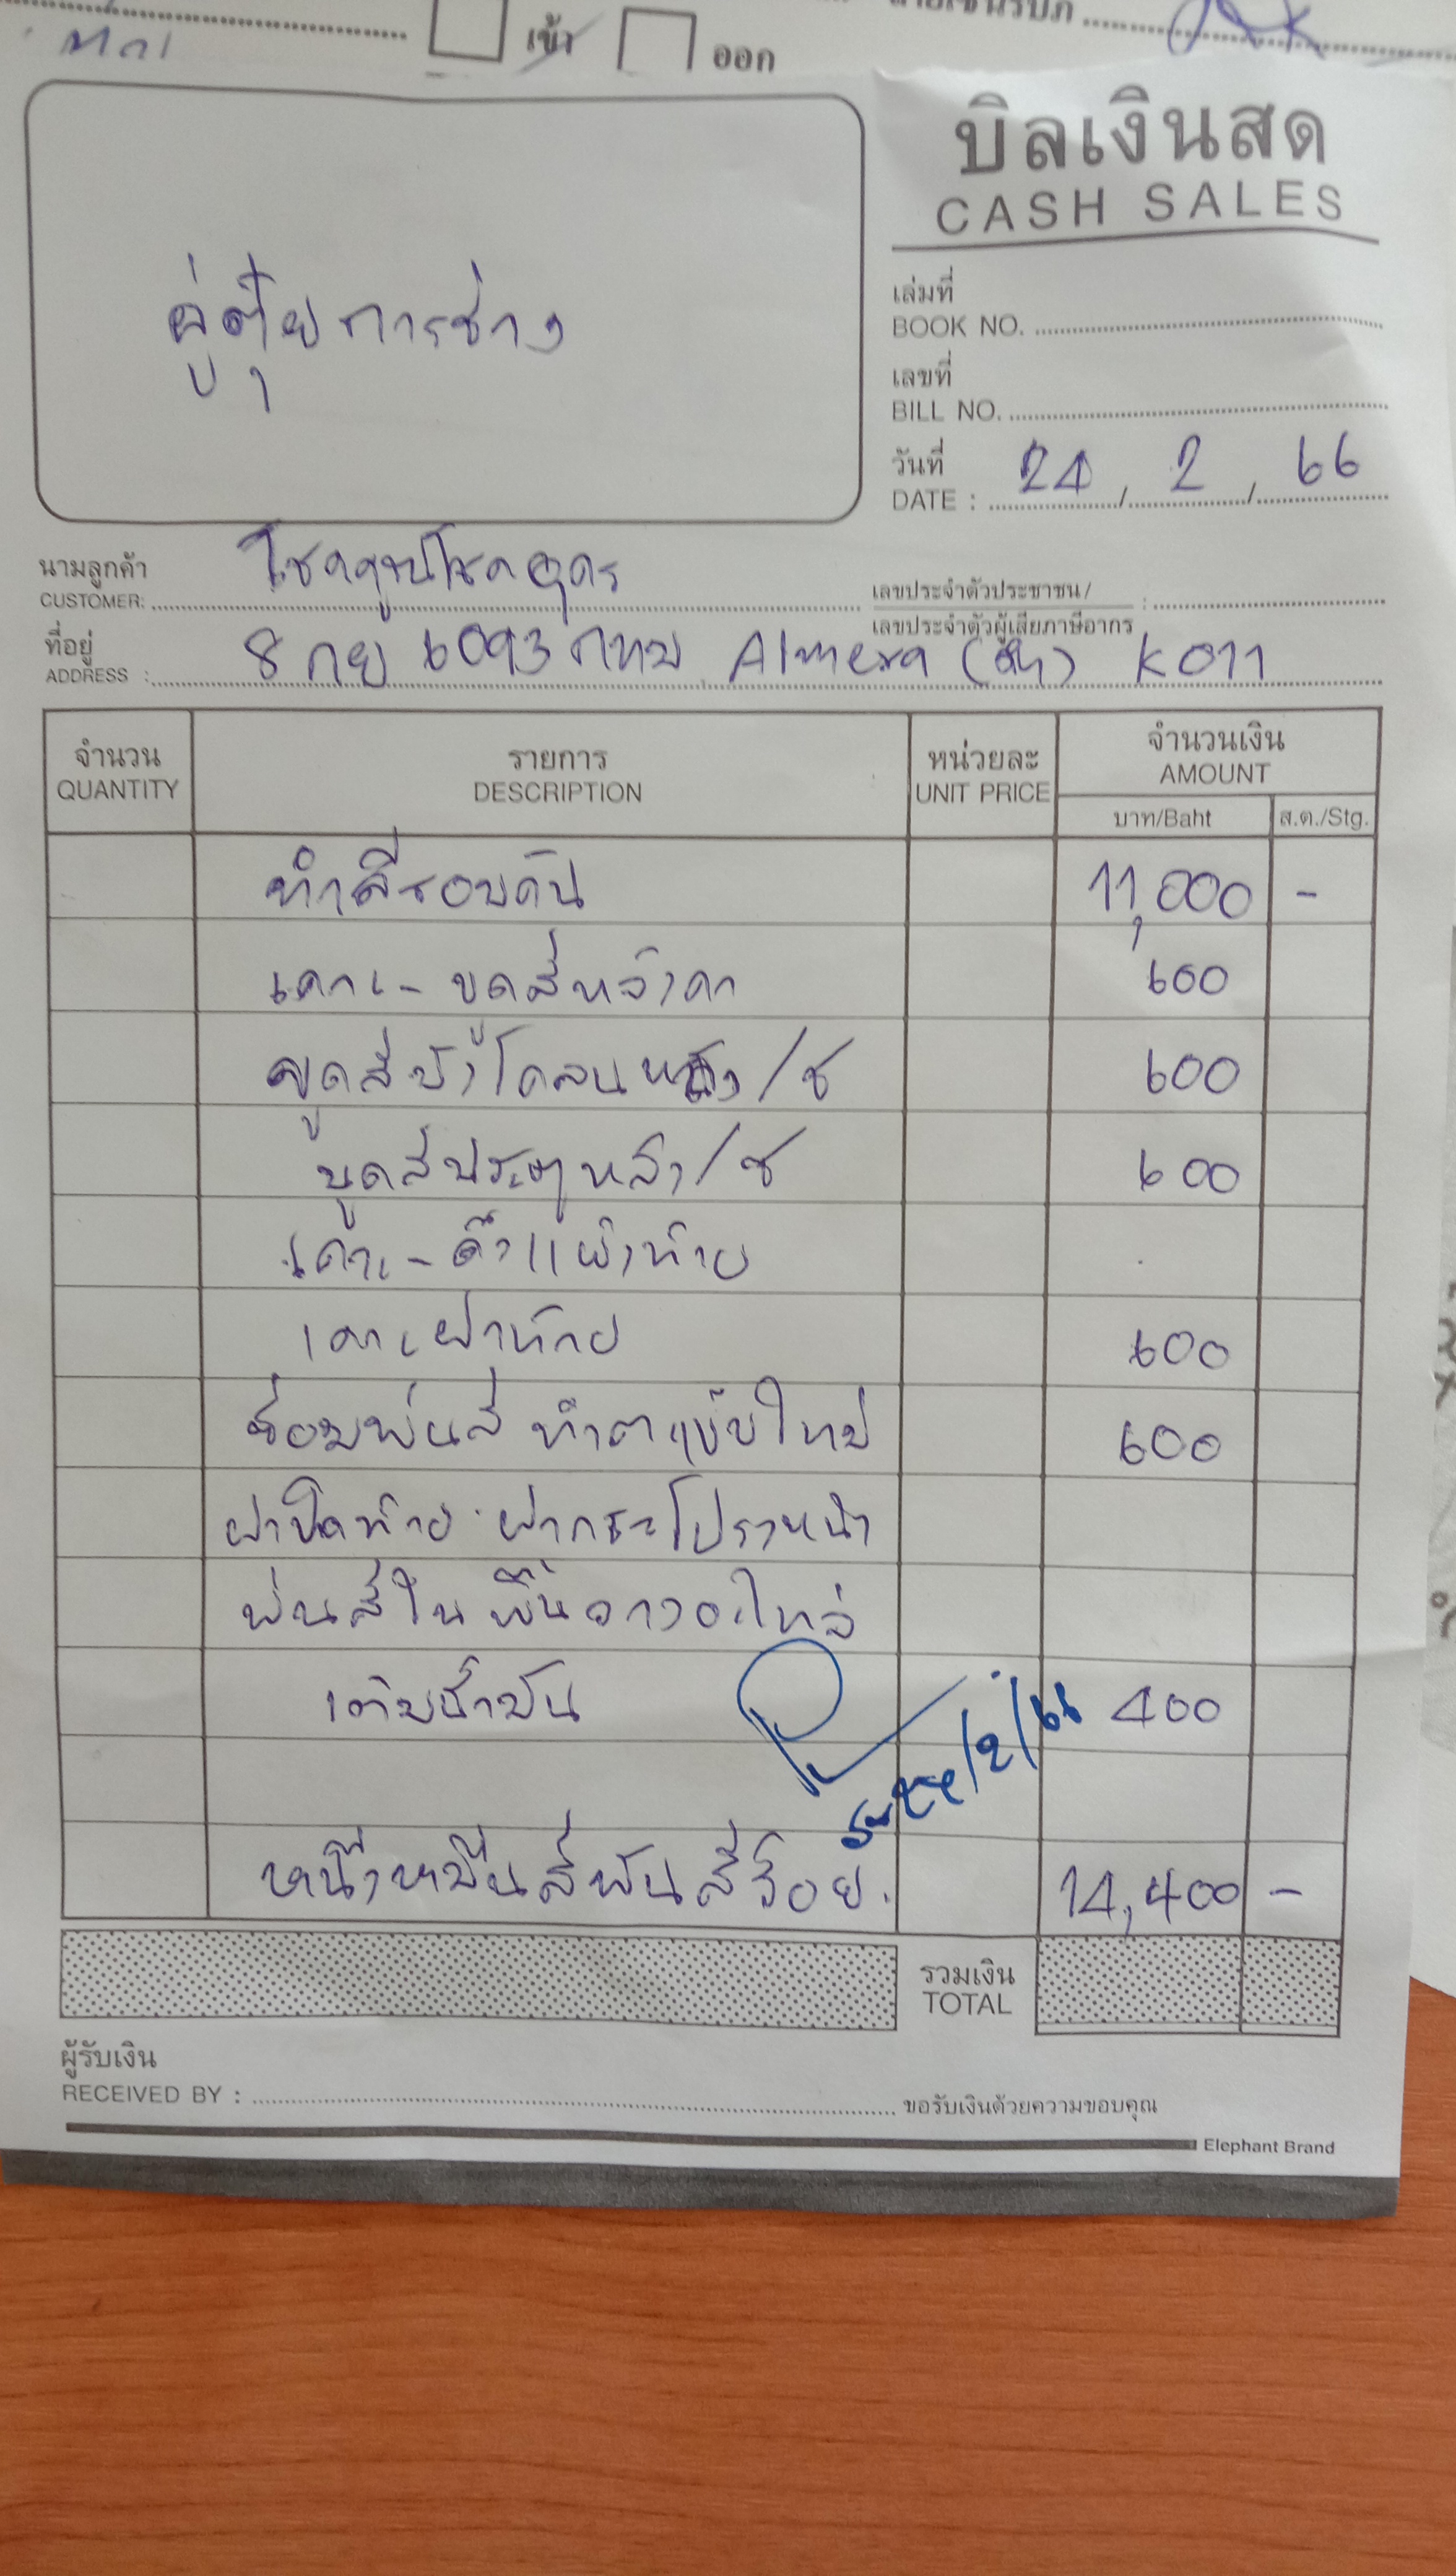 เข้า ออก
บิลเงินสด
CASH SALES
เล่มที่
BOOK NO.
ผู่ตุ๋ยการช่าง
เลขที่
BILL NO.
วันที่
DATE : 24 / 2 / 66
นามลูกค้า
CUSTOMER:
เลขประจำตัวประชาชน/ :
เลขประจำตัวผู้เสียภาษีอากร
ที่อยู่
ADDRESS : 8 กย 6093 กทม Almera (ดำ) K011
จำนวน รายการ หน่วยละ จำนวนเงิน
QUANTITY DESCRIPTION UNIT PRICE AMOUNT
บาท/Baht ส.ต./Stg.
ทำสีรอบคัน 11,000 -
เคาะ - ขูดสีหลังคา 600
ขูดสีบังโคลนหลัง/ซ 600
ขูดสีประตูหลัง/ซ 600
เคาะ - ดึงแผงท้าย
เคาะฝาท้าย 600
ซ่อมพ่นสี ทำตาแบ๊บใหม่ 600
ฝาปิดท้าย ฝากระโปรงหน้า
พ่นสีในพื้นวางอะไหล่
เติมน้ำมัน 400
๒๔/๒/๖๖
หนึ่งหมื่นสี่พันสี่ร้อย. 14,400 -
รวมเงิน
TOTAL
ผู้รับเงิน
RECEIVED BY : ขอรับเงินด้วยความขอบคุณ
Elephant Brand